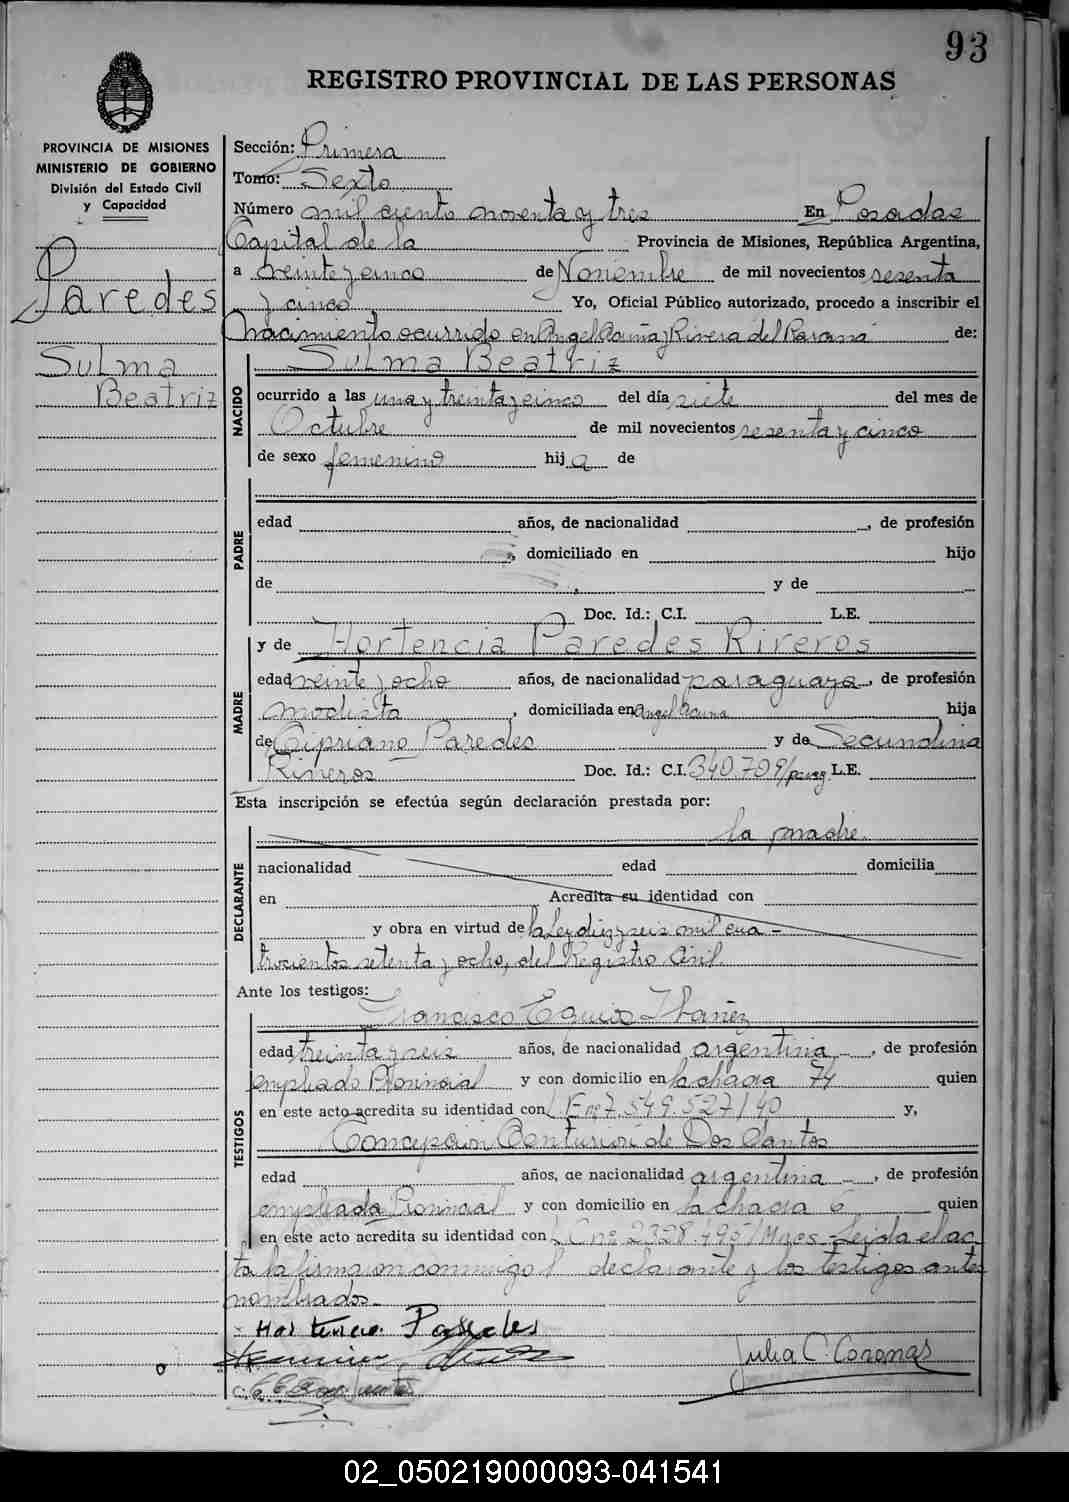 93
REGISTRO PROVINCIAL DE LAS PERSONAS
PROVINCIA DE MISIONES
MINISTERIO DE GOBIERNO
División del Estado Civil
y Capacidad
Paredes
Sulma
Beatriz
Sección: Primera
Tomo: Sexto
Número mil ciento noventa y tres En Posadas
Capital de la Provincia de Misiones, República Argentina,
a de Noviembre de mil novecientos sesenta
y cinco Yo, Oficial Público autorizado, procedo a inscribir el
nacimiento ocurrido en Angel Acuña y Rivera del Paraná de:
NACIDO
Sulma Beatriz
ocurrido a las una y treinta y cinco del día siete del mes de
Octubre de mil novecientos sesenta y cinco
de sexo femenino hij a de
PADRE
edad años, de nacionalidad , de profesión
, domiciliado en hijo
de , y de
Doc. Id.: C.I. L.E.
y de Hortencia Paredes Riveros
MADRE
edad veinte y ocho años, de nacionalidad paraguaya, de profesión
modista, domiciliada en Angel Acuña hija
de Cipriano Paredes y de Secundina
Riveros Doc. Id.: C.I. 340.709/parag. L.E.
Esta inscripción se efectúa según declaración prestada por:
la madre.
DECLARANTE
nacionalidad edad domicilia
en Acredita su identidad con
y obra en virtud de la Ley diez y seis mil cua-
trocientos setenta y ocho, del Registro Civil.
Ante los testigos:
Francisco Ibañez
TESTIGOS
edad treinta y seis años, de nacionalidad argentina, de profesión
empleado Provincial y con domicilio en la chacra 74 quien
en este acto acredita su identidad con L.E nº 7.549.527/40 y,
Concepción Centurión de Dos Santos
edad años, de nacionalidad argentina, de profesión
empleada Provincial y con domicilio en la chacra 6 quien
en este acto acredita su identidad con L C nº 2328.495/Mnes - Leida el ac
ta la firman conmigo l declarante y los testigos antes
nombrados.
Hortencia Paredes
Julia C. Coronas
02_050219000093-041541